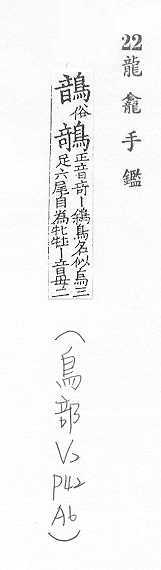 22 龍龕手鑑
俗
鵸 正音奇丨鵌鳥名似烏三
足六尾自為牝牡丨音毋二
(鳥部 V2 P42 A6)